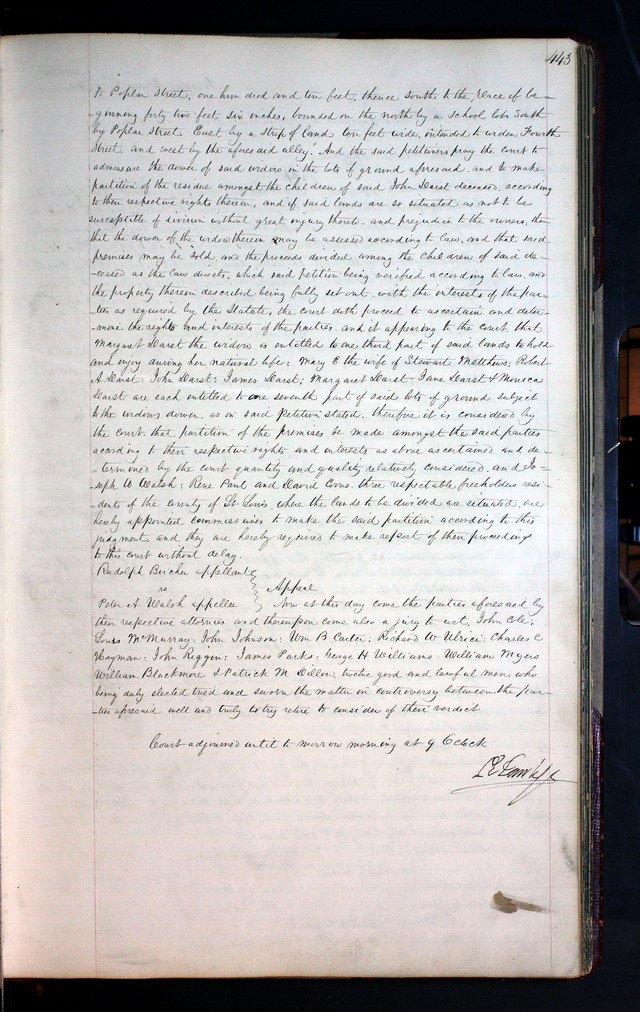 443
to Poplar Street, one hundred and ten feet, thence South to the place of be-
ginning forty two feet six inches, bounded on the north by a school lot, South
by Poplar street, East by a strip of land ten feet wide, intended to widen Fourth
Street and west by the aforesaid alley." And the said petitioners pray the court to
admeasure the dower of said widow in the lots of ground aforesaid, and to make
partition of the residue amongst the children of said John Darst deceased, according
to their respective rights therein, and if said lands are so situated as not to be
susceptible of division without great injury thereto, and prejudice to the owners, then
that the dower of the widow therein may be assessed according to law, and that said
premises may be sold, and the proceeds divided among the children of said de-
-ceased as the law directs, which said petition being verified according to law, and
the property therein described being fully set out, with the interests of the par-
ties as required by the Statute, the court doth proceed to ascertain and deter-
-mine the rights and interests of the parties, and it appearing to the court that
Margaret Darst the widow is entitled to one third part of said lands to hold
and enjoy during her natural life; Mary E the wife of Stewart Matthews; Robert
A Darst; John Darst; James Darst; Margaret Darst, Jane Darst & Monica
Darst are each entitled to one seventh part of said lots of ground subject
to the widows dower, as in said Petition stated, therefore it is considered by
the court that partition of the premises be made amongst the said parties
according to their respective rights and interests as above ascertained and de-
-termined by the court quantity and quality relatively considered, and Jo-
seph W Walsh; Rene Paul and David Coons, three respectable freeholders resi-
-dents of the county of St Louis where the lands to be divided are situated, are
hereby appointed commissioners to make the said partition according to this
judgment, and they are hereby required to make report of their proceedings
to this court without delay.
Rudolph Bircher appellant
vs Appeal
Peter A Walsh appellee Now at this day come the parties aforesaid by
their respective attornies and thereupon come also a jury to wit, John Cole;
Louis McMurray; John Johnson; Wm B Carter; Richard W Ulrici; Charles C
Hayman; John Riggin; James Park; George H Williams; William Myers
William Blackmore & Patrick M Dillon, twelve good and lawful men who
being duly elected tried and sworn the matter in controversy between the par-
-ties aforesaid well and truly to try retire to consider of their verdict
Court adjourned until to morrow morning at 9 Oclock